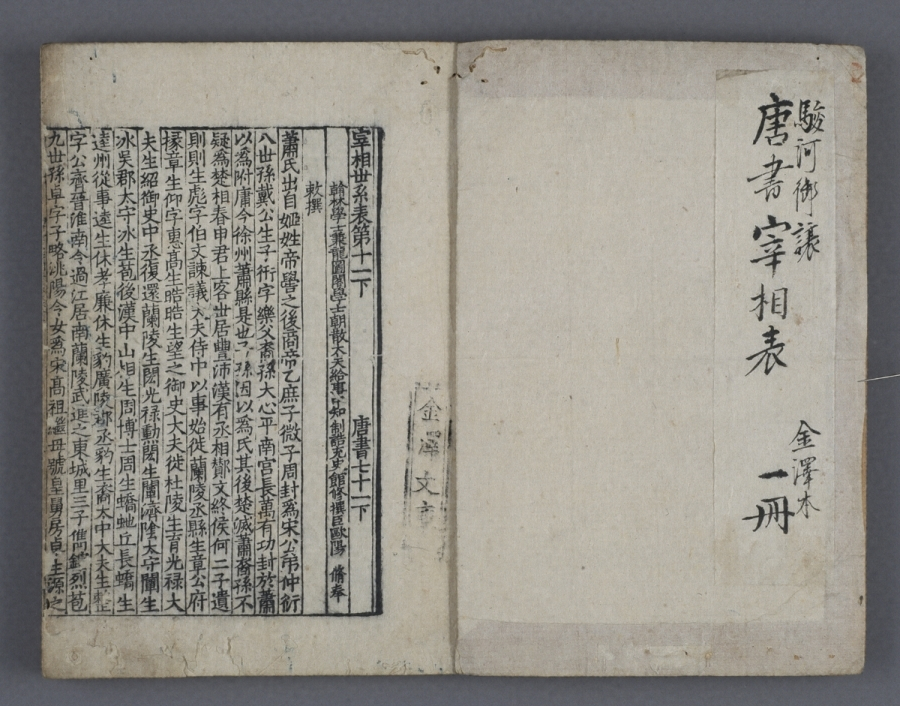 駿河御讓
唐書宰相表
金澤本
一冊
金澤文
宰相世系表第十一下 唐書七十一下
翰林學士兼龍圖閣學士朝散大夫給事中知制誥充史館修撰臣歐陽脩奉
敕撰
蕭氏出自姬姓帝嚳之後商帝乙庶子微子周封爲宋公弟仲衍
八世孫戴公生子衎字樂父裔孫大心平南宮長萬有功封於蕭
以爲附庸今徐州蕭縣是也子孫因以爲氏其後楚滅蕭裔孫不
疑爲楚相春申君上客世居豐沛漢有丞相酇文終侯何二子遺
則則生彪字伯文諫議大夫侍中以事始徙蘭陵丞縣生章公府
掾章生仰字惠高生皓皓生望之御史大夫徙杜陵生育光祿大
夫生紹御史中丞復還蘭陵生閎光祿勳閎生闡濟陰太守闡生
冰吳郡太守冰生苞後漢中山相生周博士周生蟜虵丘長蟜生
逵州從事逵生休孝廉休生豹廣陵郡丞豹生裔太中大夫生整
字公齊晉淮南令過江居南蘭陵武進之東城里三子儁鎋烈苞
九世孫卓字子略洮陽令女爲宋高祖繼母號皇舅房卓生源之